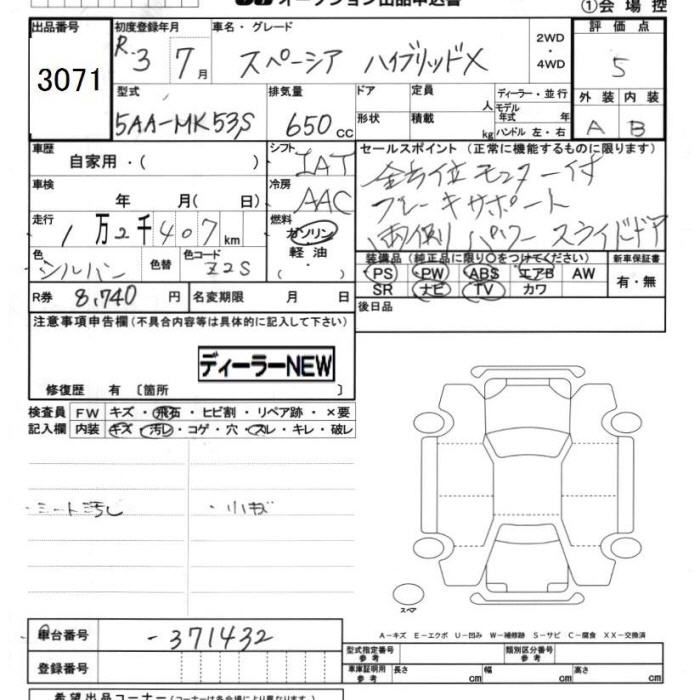 オークション出品申込書 ①会場控
出品番号 初度登録年月 車名・グレード 2WD・4WD 評価点
3071 R.3 7月 スペーシア ハイブリッドX 5
型式 排気量 ドア 定員 人 ディーラー・並行 外装 内装
5AA-MK53S 650cc 形状 積載 kg モデル年式 年 ハンドル 左・右 A B
車歴 自家用・( ) シフト IAT セールスポイント (正常に機能するものに限ります)
車検 年 月( 日) 冷房 AAC 全方位モニター付
ブレーキサポート
走行 1万2千407km 燃料 ガソリン 軽油 ( ・ ) 両側パワースライドドア
色 シルバー 色替 色コード Z2S 装備品 (純正品に限り○をつけてください) 新車保証書
PS PW ABS エアB AW 有・無
SR ナビ TV カワ
R券 8,740円 名変期限 月 日 後日品
注意事項申告欄 (不具合内容等は具体的に記入して下さい)
ディーラーNEW
修復歴 有 〔箇所 〕
検査員記入欄 FW キズ・飛石・ヒビ割・リペア跡・×要
内装 キズ・汚レ・コゲ・穴・スレ・キレ・破レ
・シート汚し ・小キズ
スペア
A-キズ E-エクボ U-凹み W-補修跡 S-サビ C-腐食 XX-交換済
車台番号 -371432 型式指定番号 参考 類別区分番号 参考
登録番号 車庫証明用 参考 長さ cm 幅 cm 高さ cm
希望出品コーナー (コーナーは各会場により異なります。)